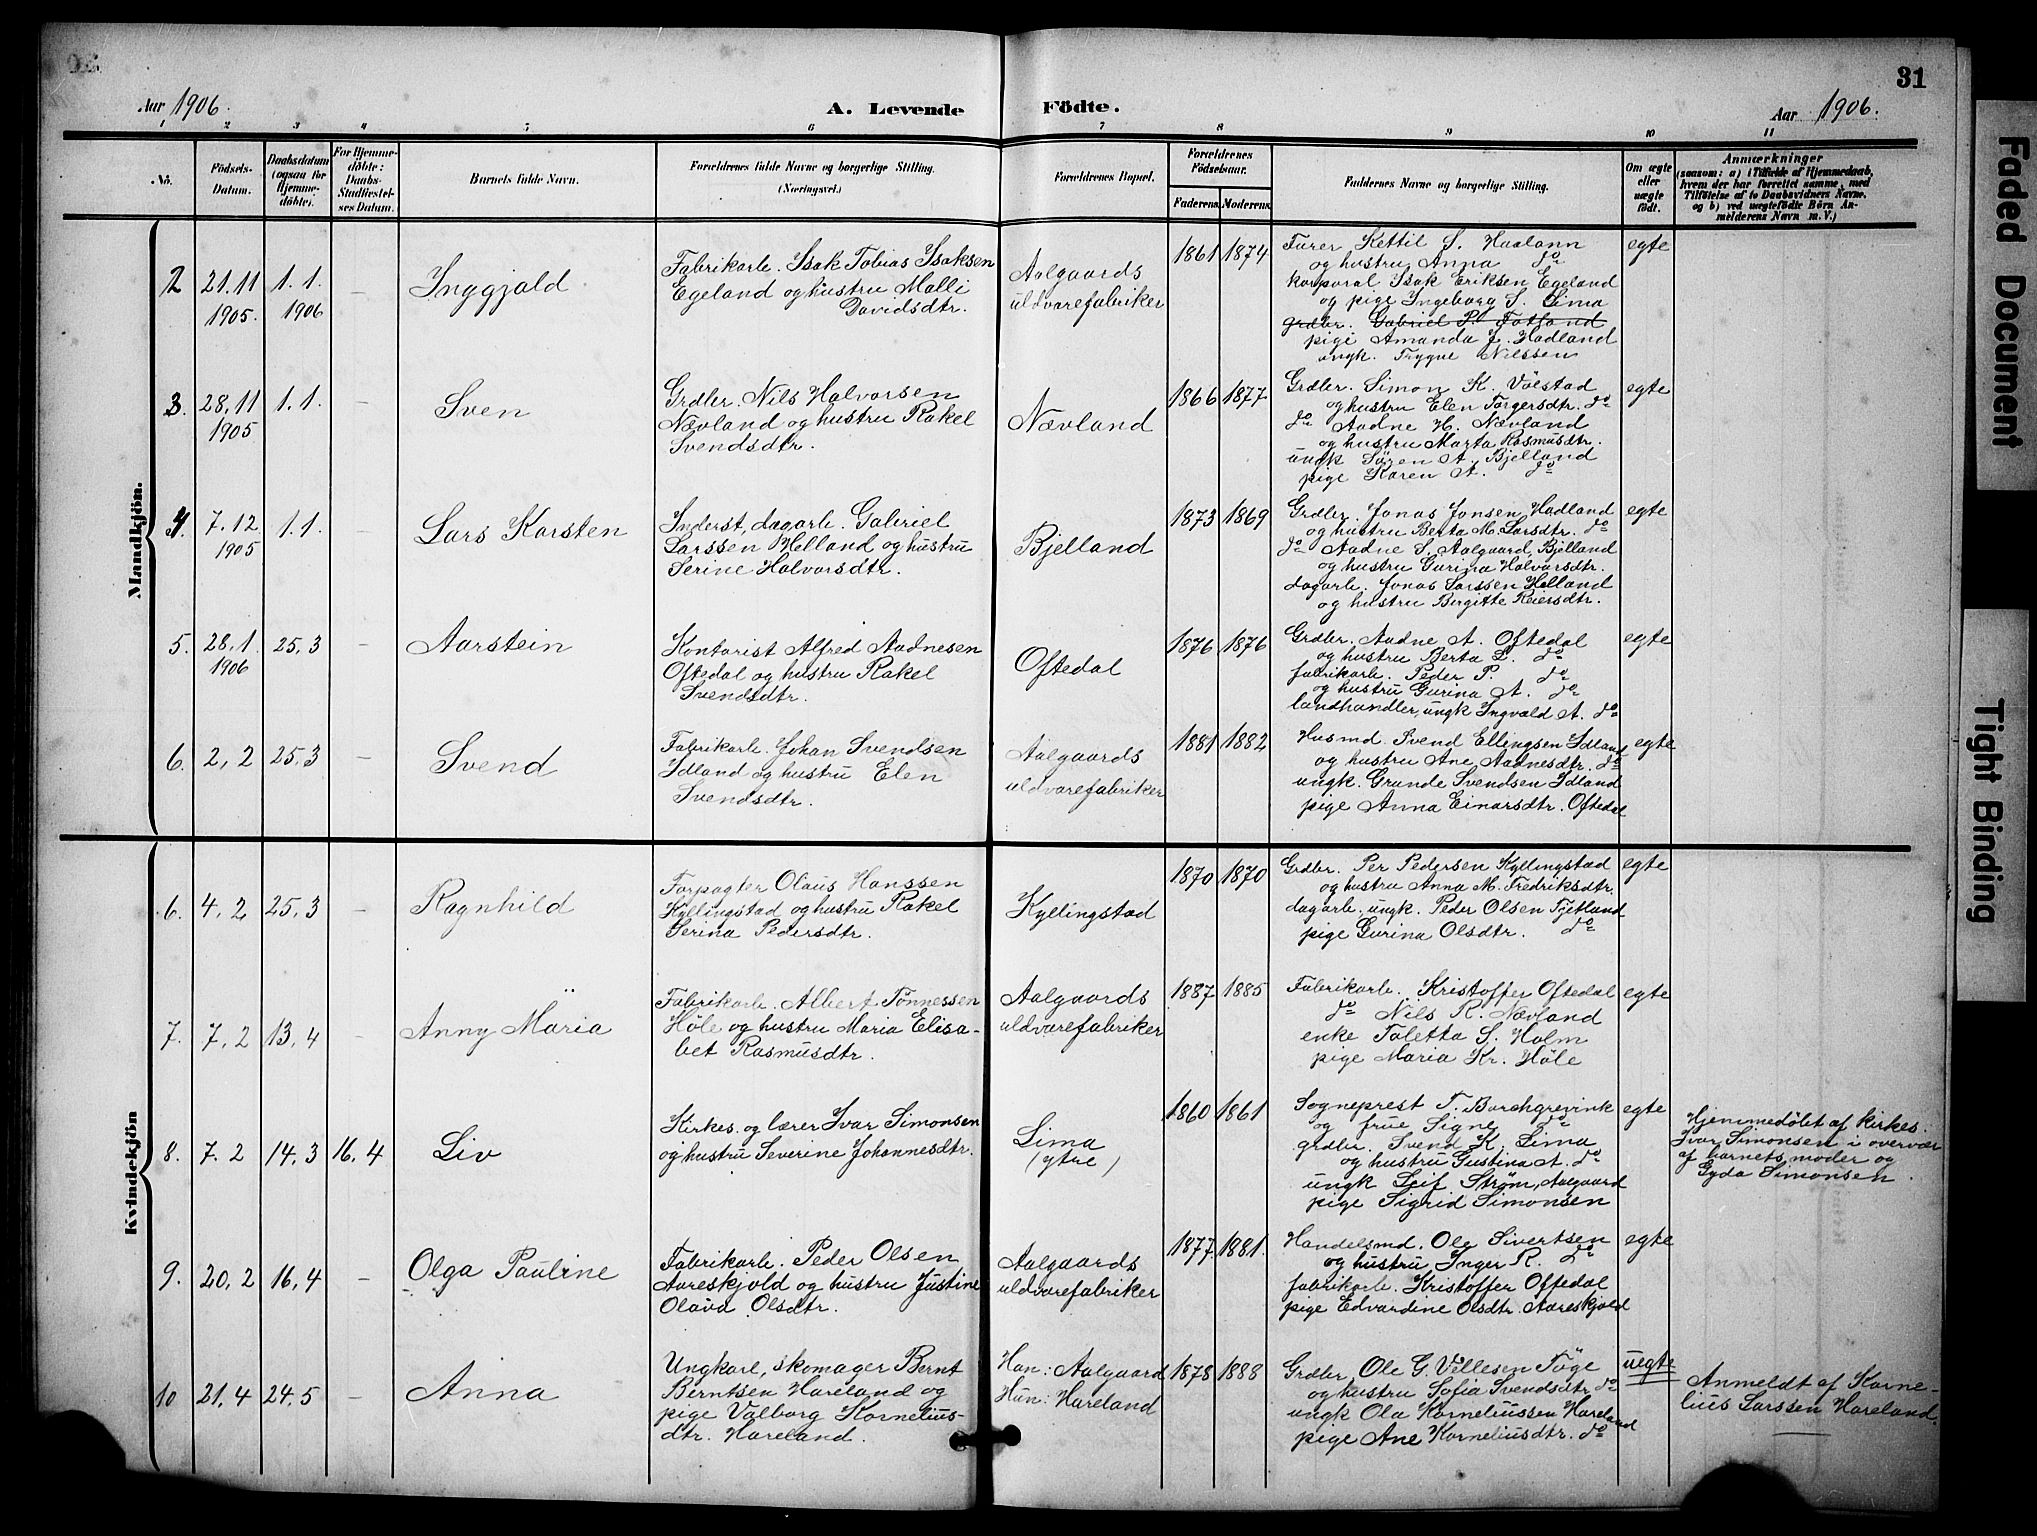 31
Aar 1906.
A. Levende Födte.
Aar 1906.
1 2 3 4 5 6 7 8 9 10 11
No.
Födsels-
Datum.
Daabsdatum
(ogsaa for
Hjemme-
döbte).
For Hjemme-
döbte:
Daabs-
Stadfæstel-
ses Datum.
Barnets fulde Navn.
Forældrenes fulde Navne og borgerlige Stilling.
(Næringsvei.)
Forældrenes Bopæl.
Forældrenes
Födselsaar.
Faderens. Moderens.
Faddernes Navne og borgerlige Stilling.
Om ægte
eller
uægte
födt.
Anmærkninger
(saasom: a) i Tilfælde af Hjemmedaab,
hvem der har forrettet samme, med
Tilföielse af to Daabsvidners Navne,
og b) ved uægtefödte Börn An-
melderens Navn m. V.)
Mandkjön.
2 21.11 1905. 1.1. 1906 –
Inggjald
Fabrikarb. Isak Tobias Isaksen
Egeland og hustru Malli
Davidsdtr.
Aalgaards
uldvarefabriker
1861 1874
Furer Kettil S. Haaland
og hustru Anna do
korporal Isak Eriksen Egeland
og pige Ingeborg S. Lima
grdbr. Gabriel P. Fotland
pige Amanda J. Hadland
ungk. Trygve Nilssen
egte
3. 28.11 1905 1.1. –
Sven
Grdbr. Nils Halvorsen
Nævland og hustru Rakel
Svendsdtr.
Nævland
1866 1877
Grdbr. Simon K. Vølstad
og hustru Elen Torgersdtr. do
do Aadne H. Nævland
og hustru Marta Rasmusdtr.
ungk Søren A. Bjelland
pige Karen A. do
egte
4. 7.12 1905 1.1. –
Lars Karsten
Inderst, dagarb. Gabriel
Larssen Helland og hustru
Serine Halvorsdtr.
Bjelland
1873 1869
Grdbr. Jonas Jonsen Hadland
og hustru Berta M. Larsdtr. do
do Aadne S. Aalgaard, Bjelland
og hustru Gurina Halvorsdtr.
dagarb. Jonas Larssen Helland
og hustru Bergitte Reiersdtr.
egte
5. 28.1 1906 25.3 –
Aarstein
Kontorist Alfred Aadnesen
Oftedal og hustru Rakel
Svendsdtr.
Oftedal
1876 1876
Grdbr. Aadne A. Oftedal
og hustru Berta L. do
fabrikarb. Peder P. do
og hustru Gurina A. do
landhandler, ungk Ingvald A. do
egte
6. 2.2 25.3 –
Svend
Fabrikarb. Johan Svendsen
Idland og hustru Elen
Svendsdtr.
Aalgaards
uldvarefabriker
1881 1882
Husmd. Svend Ellingsen Idland
og hustru Ane Aadnesdtr. do
ungk. Grunde Svendsen Idland
pige Anna Einarsdtr. Oftedal
egte
Kvindekjön
6. 4.2 25.3 –
Ragnhild
Forpagter Olaus Hanssen
Kyllingstad og hustru Rakel
Serina Pedersdtr.
Kyllingstad
1870 1870
Grdbr. Per Pedersen Kyllingstad
og hustru Anna M. Fredriksdtr.
dagarb., ungk. Peder Olsen Tjetland
pige Gurina Olsdtr. do
egte
7. 7.2 13.4 –
Anny Maria
Fabrikarb. Albert Tønnessen
Høle og hustru Maria Elisa-
bet Rasmusdtr.
Aalgaards
uldvarefabriker
1887 1885
Fabrikarb. Kristoffer Oftedal
do Nils R. Nævland
enke Taletta S. Holm
pige Maria Kr. Høle
egte
8. 7.2 14.3 16.4
Liv
Kirkes. og lærer Ivar Simonsen
og hustru Severine Johannesdtr.
Lima
(ytre)
1860 1861
Sogneprest T. Borchgrevink
og frue Signe do
grdbr. Svend K. Lima
og hustru Gustina A. do
ungk Leif Strøm, Aalgaard
pige Sigrid Simonsen
egte
Hjemmedøbt af kirkes.
Ivar Simonsen i overvær
af barnets moder og
Gyda Simonsen.
9. 20.2 16.4 –
Olga Pauline
Fabrikarb. Peder Olsen
Aareskjold og hustru Justine
Olava Olsdtr.
Aalgaards
uldvarefabriker
1877 1881.
Handelsmd. Ole Sivertsen
og hustru Inger R. do
fabrikarb. Kristoffer Oftedal
pige Edvardine Olsdtr. Aareskjold
egte
10 21.4 24.5 –
Anna
Ungkarl, skomager Bernt
Berntsen Hareland og
pige Valborg Kornelius-
dtr. Hareland.
Han: Aalgaard
Hun: Hareland
1878 1888
Grdbr. Ole G. Vellesen Tøge
og hustru Sofia Svendsdtr do
ungk Ola Korneliussen Hareland
pige Ane Korneliusdtr. do
uegte
Anmeldt af Korne-
lius Larssen Hareland.
Faded Document
Tight Binding